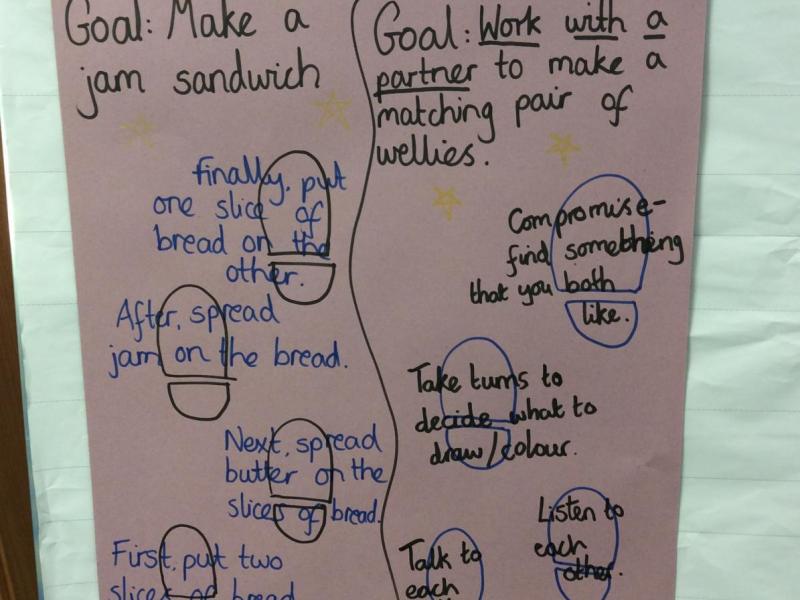 Goal: Make a
jam sandwich
Finally, put
one slice of
bread on the
other.
After, spread
jam on the bread.
Next, spread
butter on the
slices of bread.
First, put two
slices of bread
Goal: Work with a
partner to make a
matching pair of
wellies.
Compromise-
find something
that you both
like.
Take turns to
decide what to
draw/colour.
Listen to
each
other.
Talk to
each